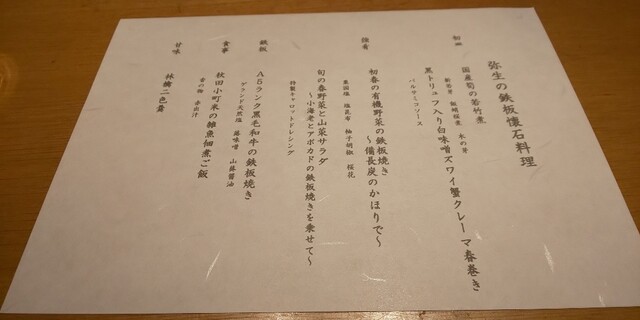 弥生の鉄板懐石料理
初皿
国産筍の若竹煮
新若芽 飯蛸桜煮 木の芽
黒トリュフ入り白味噌ズワイ蟹クレーマ春巻き
バルサミコソース
強肴
初春の有機野菜の鉄板焼き
～備長炭のかほりで～
藻塩 塩昆布 柚子胡椒 桜花
旬の春野菜と山菜サラダ
～小海老とアボカドの鉄板焼きを乗せて～
特製キャロットドレシング
鉄板
A5ランク黒毛和牛の鉄板焼き
ゲランド天然塩 蕗味噌 山葵醤油
食事
秋田小町米の雑魚佃煮ご飯
香の物 赤出汁
甘味
林檎二色羹